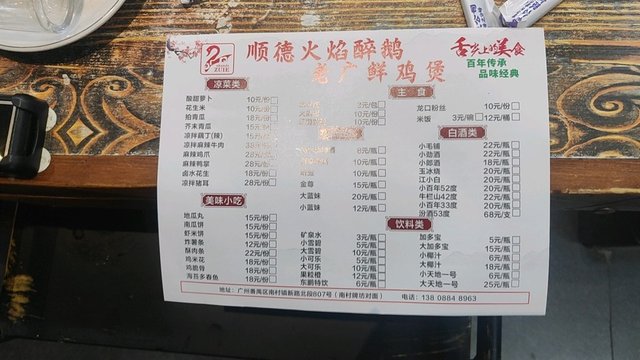 顺德火焰醉鹅
老广鲜鸡煲
舌尖上的美食
百年传承
品味经典
ZUIE
凉菜类
酸甜萝卜 10元/份
花生米 10元/份
拍青瓜 15元/份
芥末青瓜 15元/份
凉拌藕丁(辣) 15元/份
凉拌麻辣牛肉 38元/份
麻辣鸡爪 28元/份
麻辣鸭掌 28元/份
卤水花生 18元/份
凉拌猪耳 28元/份
美味小吃
地瓜丸 15元/份
南瓜饼 15元/份
虾米饼 15元/份
炸薯条 12元/份
酥肉条 22元/份
鸡米花 18元/份
鸡脆骨 18元/份
海苔多春鱼 18元/份
主食
3元/包
10元/份
10元/份
龙口粉丝 10元/份
米饭 3元/碗 12元/桶
8元/瓶
10元/瓶
12元/瓶
金尊 15元/瓶
大蓝妹 20元/瓶
小蓝妹 12元/瓶
白酒类
小毛铺 22元/瓶
小劲酒 22元/瓶
小郎酒 18元/瓶
玉冰烧 20元/瓶
江小白 20元/瓶
小百年52度 20元/瓶
牛栏山42度 22元/瓶
小百年33度 20元/瓶
汾酒53度 68元/支
饮料类
矿泉水 3元/瓶
小雪碧 5元/瓶
大雪碧 10元/瓶
小可乐 5元/瓶
大可乐 10元/瓶
果粒橙 12元/瓶
东鹏特饮 6元/瓶
加多宝 5元/瓶
大加多宝 15元/瓶
小椰汁 6元/瓶
大椰汁 18元/瓶
小天地一号 6元/瓶
大天地一号 25元/瓶
地址:广州番禺区南村镇新路北段807号(南村牌坊对面) 电话:138 0884 8963